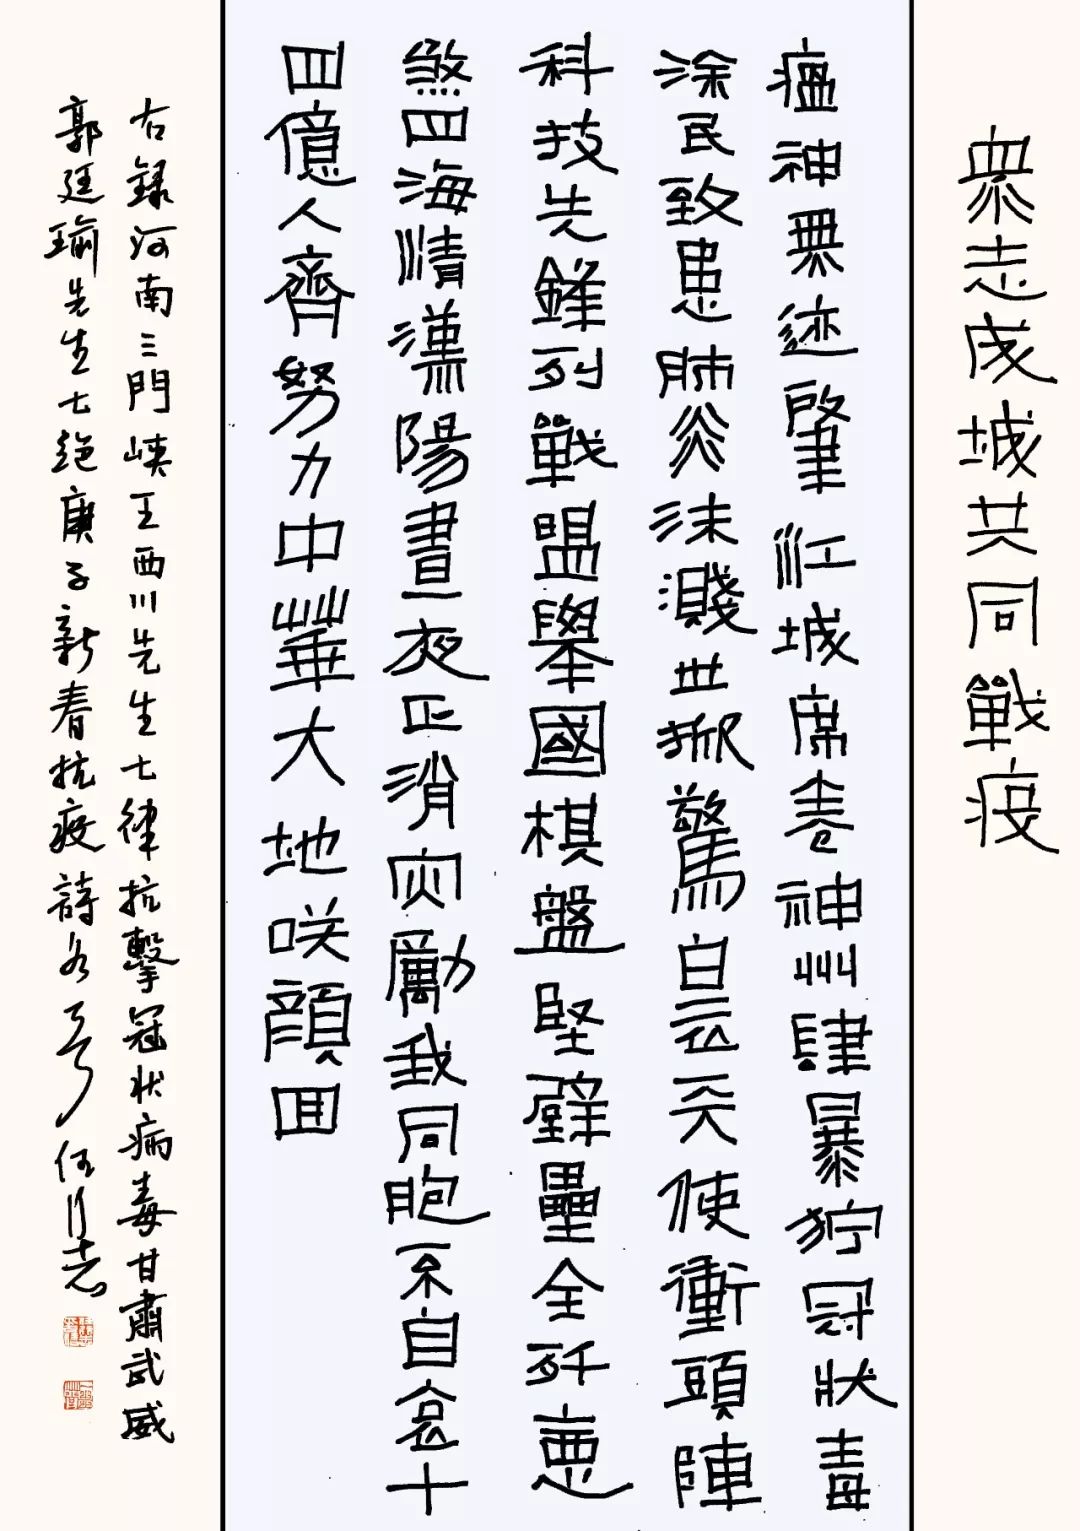 眾志成城共同戰疫
瘟神無迹肇江城席卷神州肆暴狞冠狀毒
涂民致患肺炎沫濺世掀驚白衣天使衝頭陣
科技先鋒列戰盟舉國棋盤堅壁壘全歼惡
煞四海清漢陽晝夜正消灾勵我同胞不自哀十
四億人齊努力中華大地咲顏回
右録河南三門峽王西川先生七律抗擊冠狀病毒甘肅武威
郭廷瑜先生七絕庚子新春抗疫詩各一首任行志